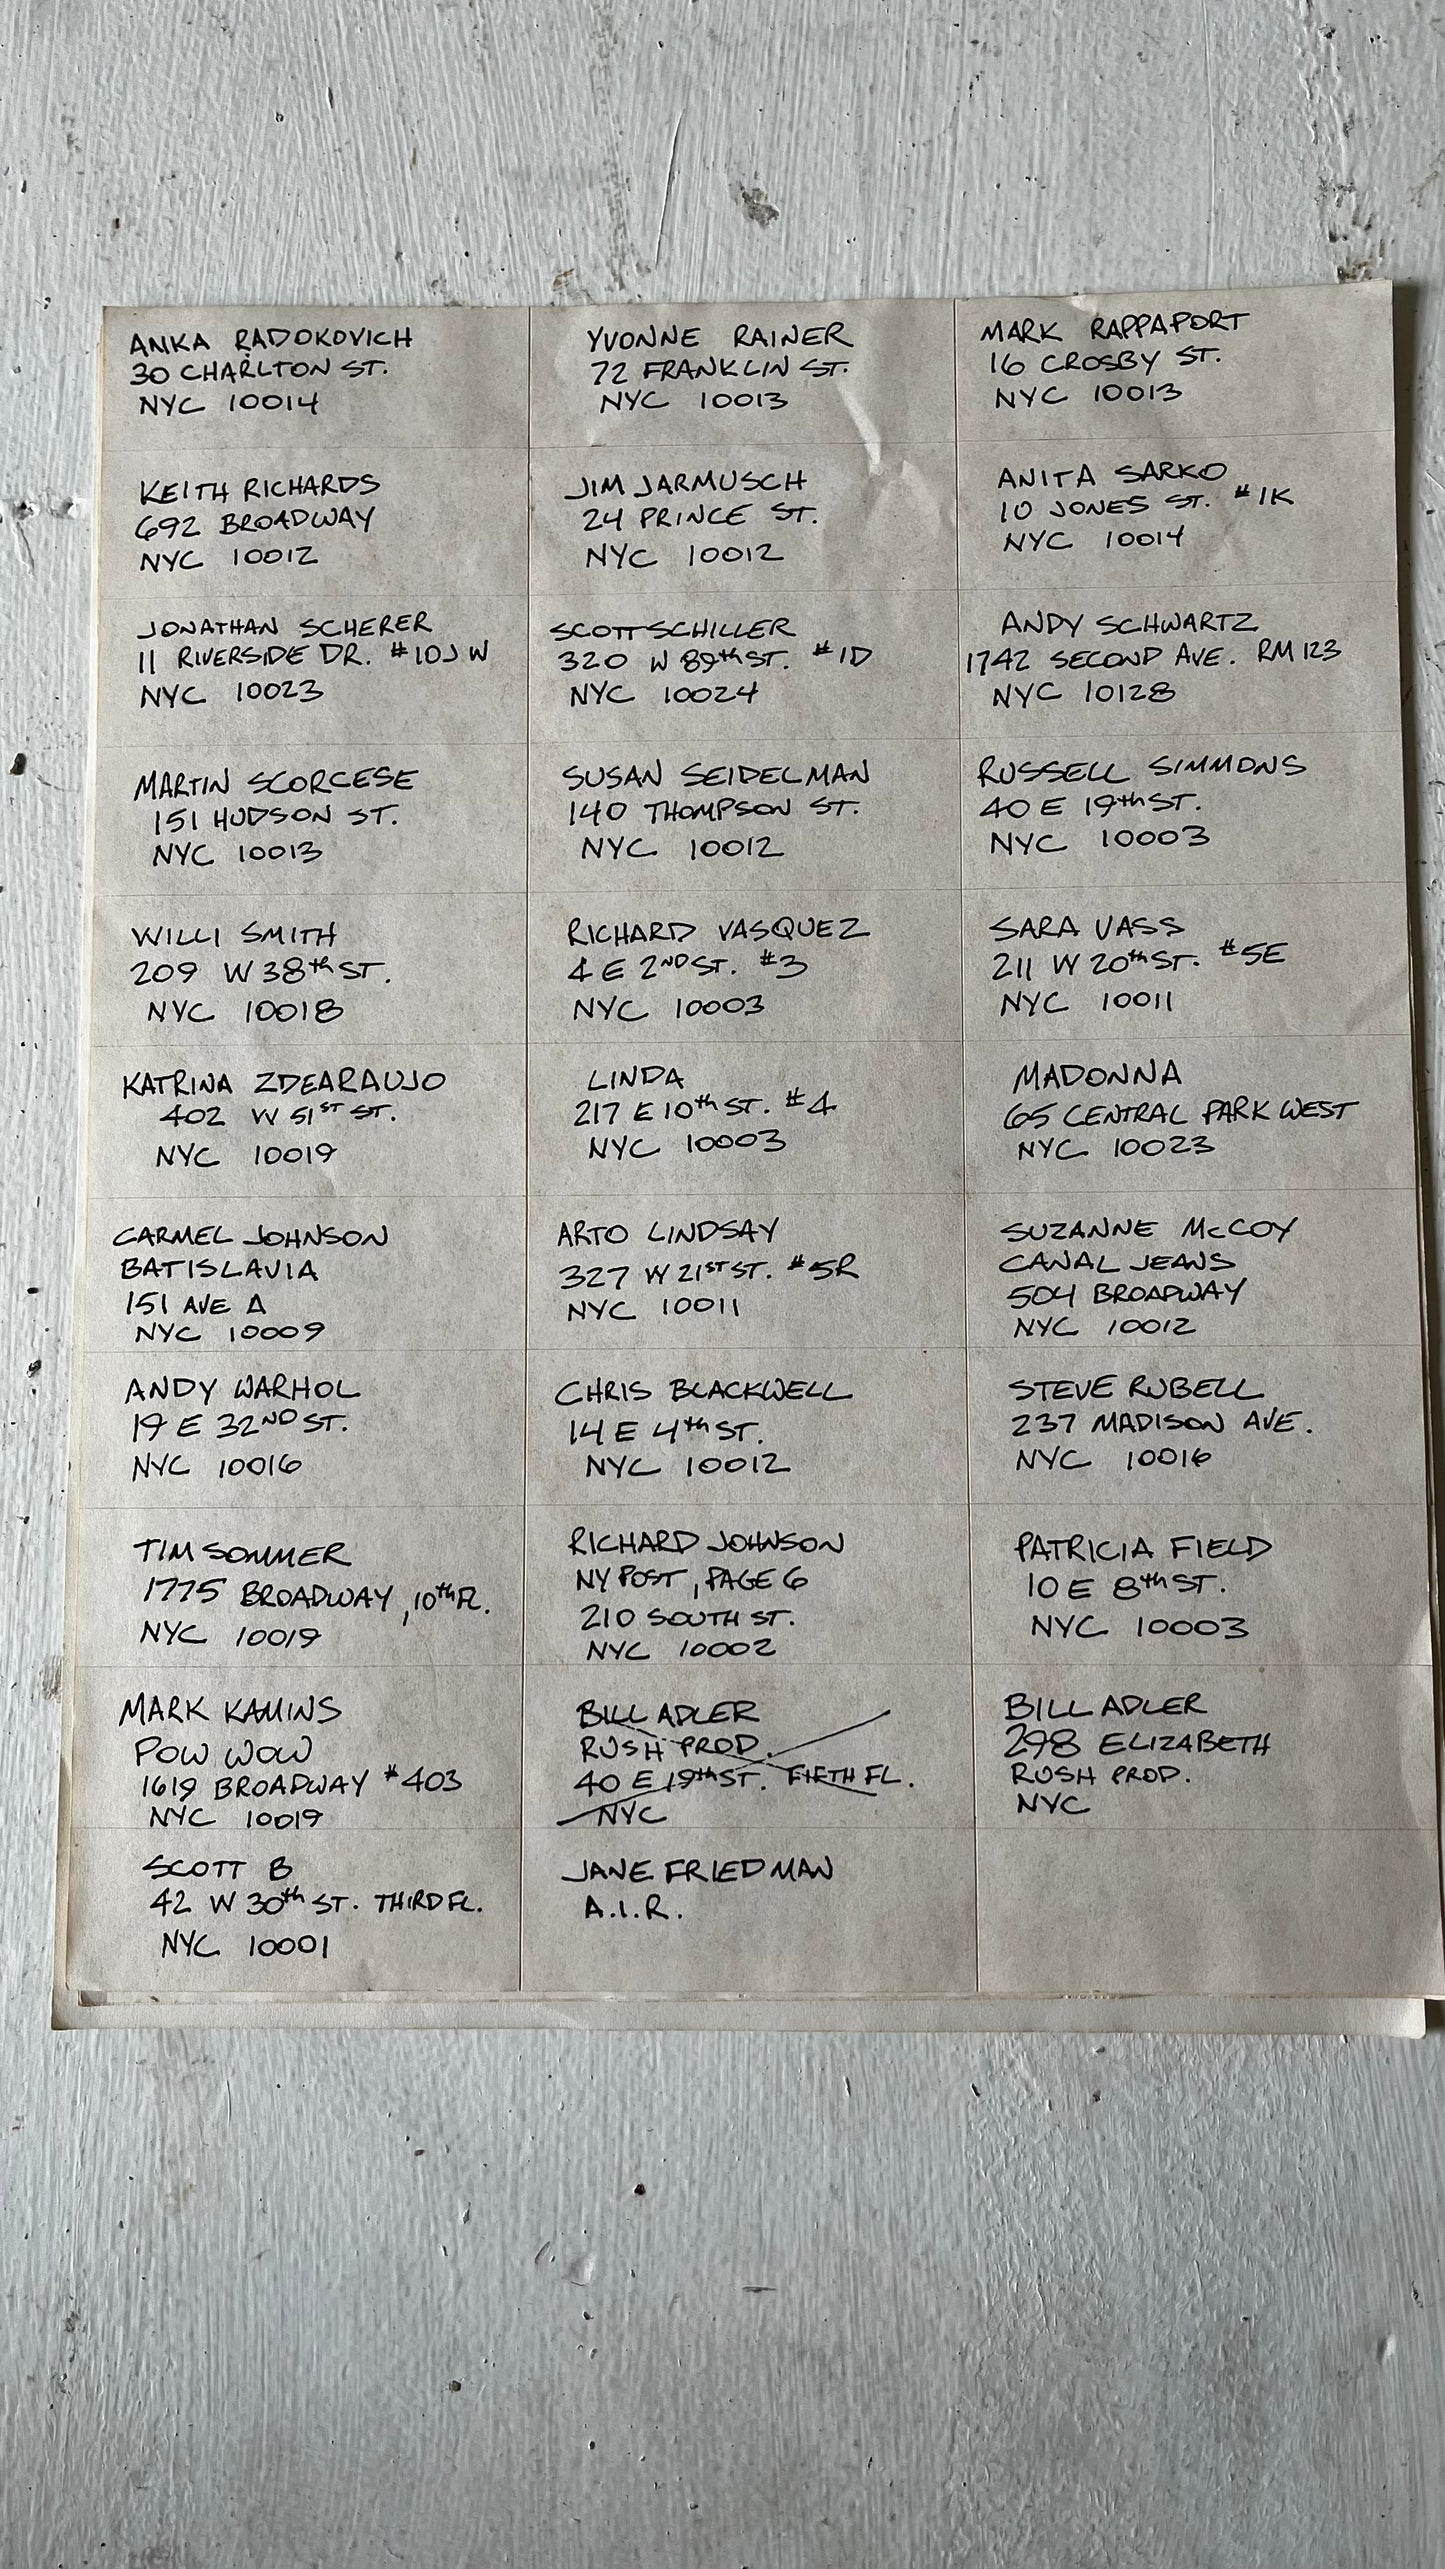 ANKA RADOKOVICH
30 CHARLTON ST.
NYC 10014
YVONNE RAINER
72 FRANKLIN ST.
NYC 10013
MARK RAPPAPORT
16 CROSBY ST.
NYC 10013
KEITH RICHARDS
692 BROADWAY
NYC 10012
JIM JARMUSCH
24 PRINCE ST.
NYC 10012
ANITA SARKO
10 JONES ST. #1K
NYC 10014
JONATHAN SCHERER
11 RIVERSIDE DR. #10J W
NYC 10023
SCOTT SCHILLER
320 W 89th ST. #1D
NYC 10024
ANDY SCHWARTZ
1742 SECOND AVE. RM 123
NYC 10128
MARTIN SCORCESE
151 HUDSON ST.
NYC 10013
SUSAN SEIDELMAN
140 THOMPSON ST.
NYC 10012
RUSSELL SIMMONS
40 E 19th ST.
NYC 10003
WILLI SMITH
209 W 38th ST.
NYC 10018
RICHARD VASQUEZ
4 E 2ND ST. #3
NYC 10003
SARA VASS
211 W 20th ST. #5E
NYC 10011
KATRINA ZDEARAUJO
402 W 51ST ST.
NYC 10019
LINDA
217 E 10th ST. #4
NYC 10003
MADONNA
65 CENTRAL PARK WEST
NYC 10023
CARMEL JOHNSON
BATISLAVIA
151 AVE A
NYC 10009
ARTO LINDSAY
327 W 21ST ST. #5R
NYC 10011
SUZANNE McCOY
CANAL JEANS
504 BROADWAY
NYC 10012
ANDY WARHOL
19 E 32ND ST.
NYC 10016
CHRIS BLACKWELL
14 E 4th ST.
NYC 10012
STEVE RUBELL
237 MADISON AVE.
NYC 10016
TIM SOMMER
1775 BROADWAY, 10th FL.
NYC 10019
RICHARD JOHNSON
NY POST, PAGE 6
210 SOUTH ST.
NYC 10002
PATRICIA FIELD
10 E 8th ST.
NYC 10003
MARK KAMINS
POW WOW
1619 BROADWAY #403
NYC 10019
BILL ADLER
RUSH PROD.
40 E 19th ST. FIFTH FL.
NYC
BILL ADLER
298 ELIZABETH
RUSH PROD.
NYC
SCOTT B
42 W 30th ST. THIRD FL.
NYC 10001
JANE FRIEDMAN
A.I.R.